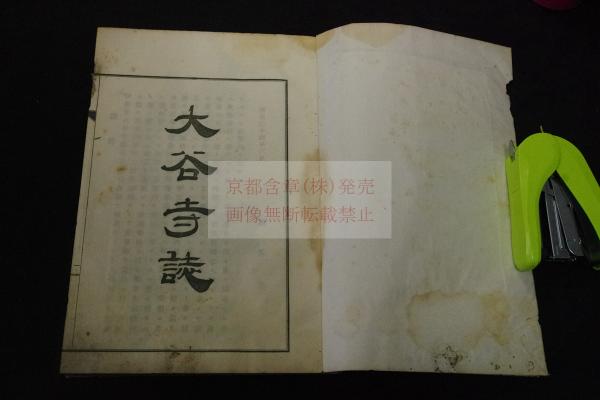 大谷寺誌
京都含章(株)発売
画像無断転載禁止